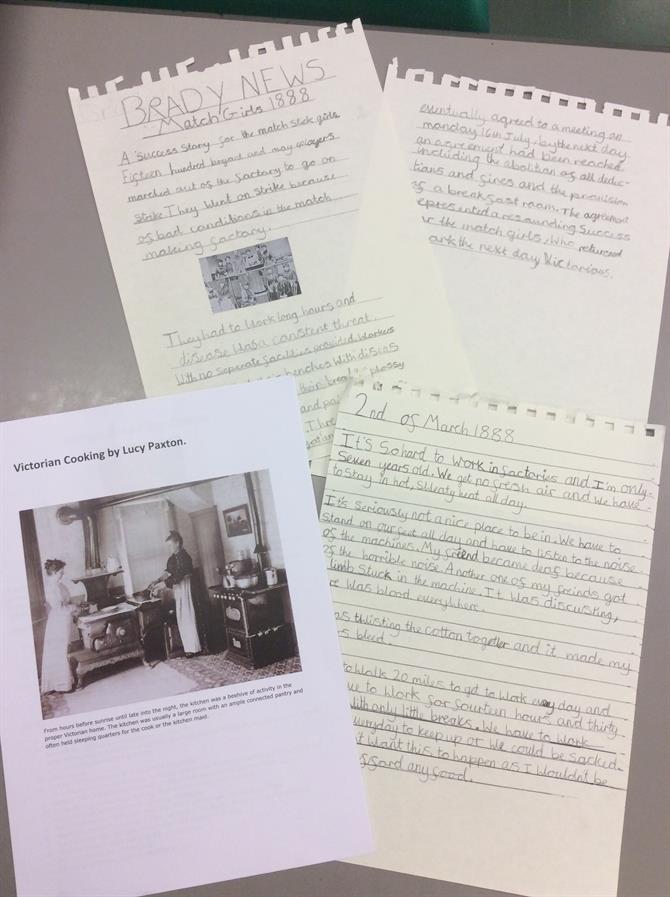 BRADY NEWS
Match Girls 1888
A success story for the match stick girls
Fifteen hundred bryant and may
marched out of the factory to go on
strike They went on strike because
of bad conditions in the match
making factory.
They had to work long hours and
disease was a constent threat.
With no seperate facilities provided. Workers
benches With
their
and
eventually agreed to a meeting on
monday 16th July, by the next day
an agreement had been reached
including the abolition of all deduc-
tions and fines and the provision
of a breakfast room. The agreement
represented a resounding success
the match girls, Who returned
the next day Victorious.
Victorian Cooking by Lucy Paxton.
From hours before sunrise until late into the night, the kitchen was a beehive of activity in the
proper Victorian home. The kitchen was usually a large room with an ample connected pantry and
often held sleeping quarters for the cook or the kitchen maid.
2nd of March 1888
It's So hard to work in factories and I'm only
Seven years old. We get no fresh air and We have
to stay in hot, Sweaty heat all day.
It's seriously not a nice place to be in. We have to
stand on our feet all day and have to listen to the noise
of the machines. My freind became deaf because
of the horrible noise. Another one of my freinds got
limb stuck in the machine. It Was discusting,
Was blood everywhere.
the cotton together and it made my
bleed.
to Walk 20 miles to get to Work every day and
to Work for fourteen hours and thirty
With only little breaks. We have to Work
everyday to keep up or We could be sacked.
Want this to happen as I Wouldn't be
any food.